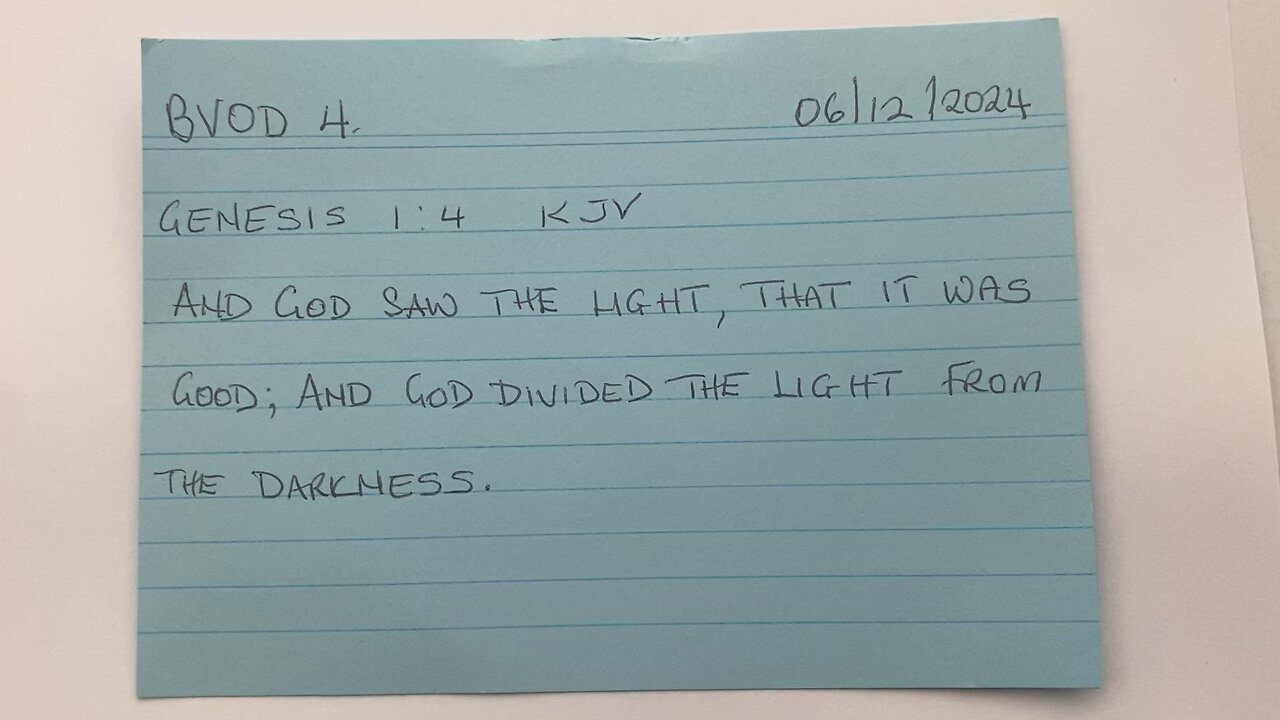 BVOD 4.
06/12/2024
GENESIS 1:4 KJV
AND GOD SAW THE LIGHT, THAT IT WAS
GOOD; AND GOD DIVIDED THE LIGHT FROM
THE DARKNESS.